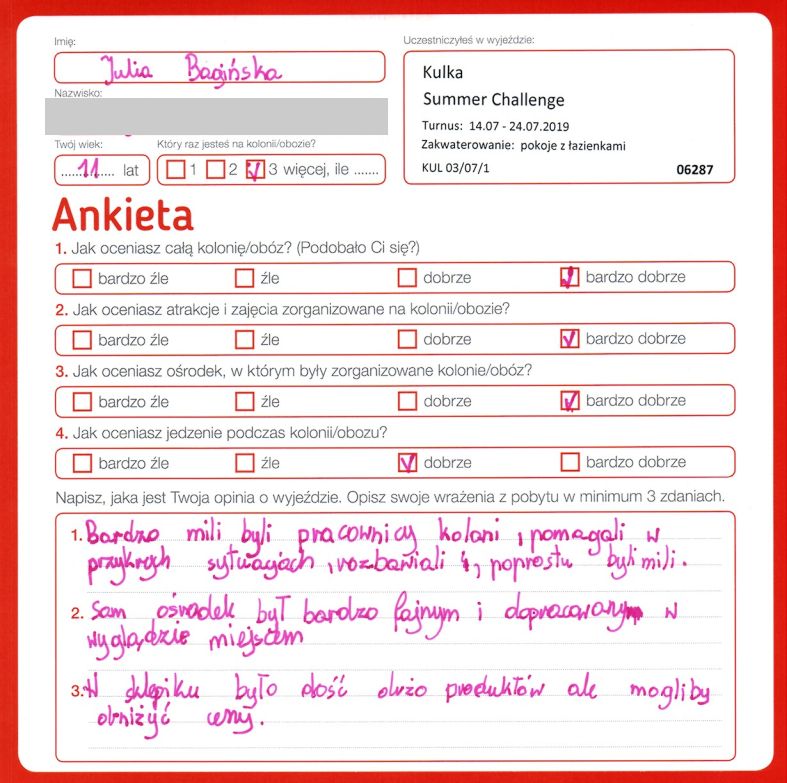 Imię:
Uczestniczyłeś w wyjeździe:
Julia Bagińska
Kulka
Summer Challenge
Nazwisko:
Turnus: 14.07 - 24.07.2019
Zakwaterowanie: pokoje z łazienkami
KUL 03/07/1 06287
Twój wiek: Który raz jesteś na kolonii/obozie?
11 lat 1 2 3 więcej, ile .......
Ankieta
1. Jak oceniasz całą kolonię/obóz? (Podobało Ci się?)
bardzo źle źle dobrze bardzo dobrze
2. Jak oceniasz atrakcje i zajęcia zorganizowane na kolonii/obozie?
bardzo źle źle dobrze bardzo dobrze
3. Jak oceniasz ośrodek, w którym były zorganizowane kolonie/obóz?
bardzo źle źle dobrze bardzo dobrze
4. Jak oceniasz jedzenie podczas kolonii/obozu?
bardzo źle źle dobrze bardzo dobrze
Napisz, jaka jest Twoja opinia o wyjeździe. Opisz swoje wrażenia z pobytu w minimum 3 zdaniach.
1. Bardzo mili byli pracownicy kolani, pomagali w
przykrych sytuacjach, rozbawiali i, poprostu byli mili.
2. Sam ośrodek był bardzo fajnym i dopracowanym w
wyglądzie miejscem
3. W sklepiku było dość dużo produktów ale mogliby
obniżyć ceny.